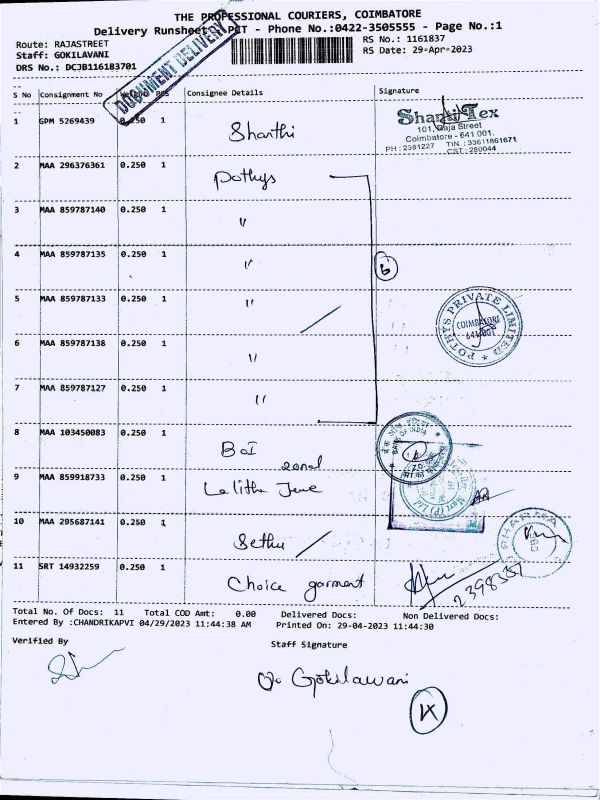 THE PROFESSIONAL COURIERS, COIMBATORE
Delivery Runsheet - PCT - Phone No.:0422-3505555 - Page No.:1
Route: RAJASTREET
RS No.: 1161837
Staff: GOKILAVANI
RS Date: 29-Apr-2023
DRS No.: DCJB116183701
DOCUMENT DELIVERY
S No Consignment No Weight PCS Consignee Details Signature
1 GPM 5269439 0.250 1 Shanthi
Shanti Tex
101, Raja Street
Coimbatore - 641 001.
PH : 2381227 TIN : 33611861671
CST : 280044
2 MAA 296376361 0.250 1 Pothys
3 MAA 859787140 0.250 1 "
4 MAA 859787135 0.250 1 "
6
5 MAA 859787133 0.250 1 "
POTHYS PRIVATE LIMITED
COIMBATORE
641 001
6 MAA 859787138 0.250 1 "
7 MAA 859787127 0.250 1 "
8 MAA 103450083 0.250 1 BOI
zonal
BANK OF INDIA
9 MAA 859918733 0.250 1 Lalitha Jewe
10 MAA 295687141 0.250 1 Sethu
PHARMA
CBE
11 SRT 14932259 0.250 1 Choice garment
2398357
Total No. Of Docs: 11 Total COD Amt: 0.00 Delivered Docs: Non Delivered Docs:
Entered By :CHANDRIKAPVI 04/29/2023 11:44:38 AM Printed On: 29-04-2023 11:44:30
Verified By
Staff Signature
Gokilavani